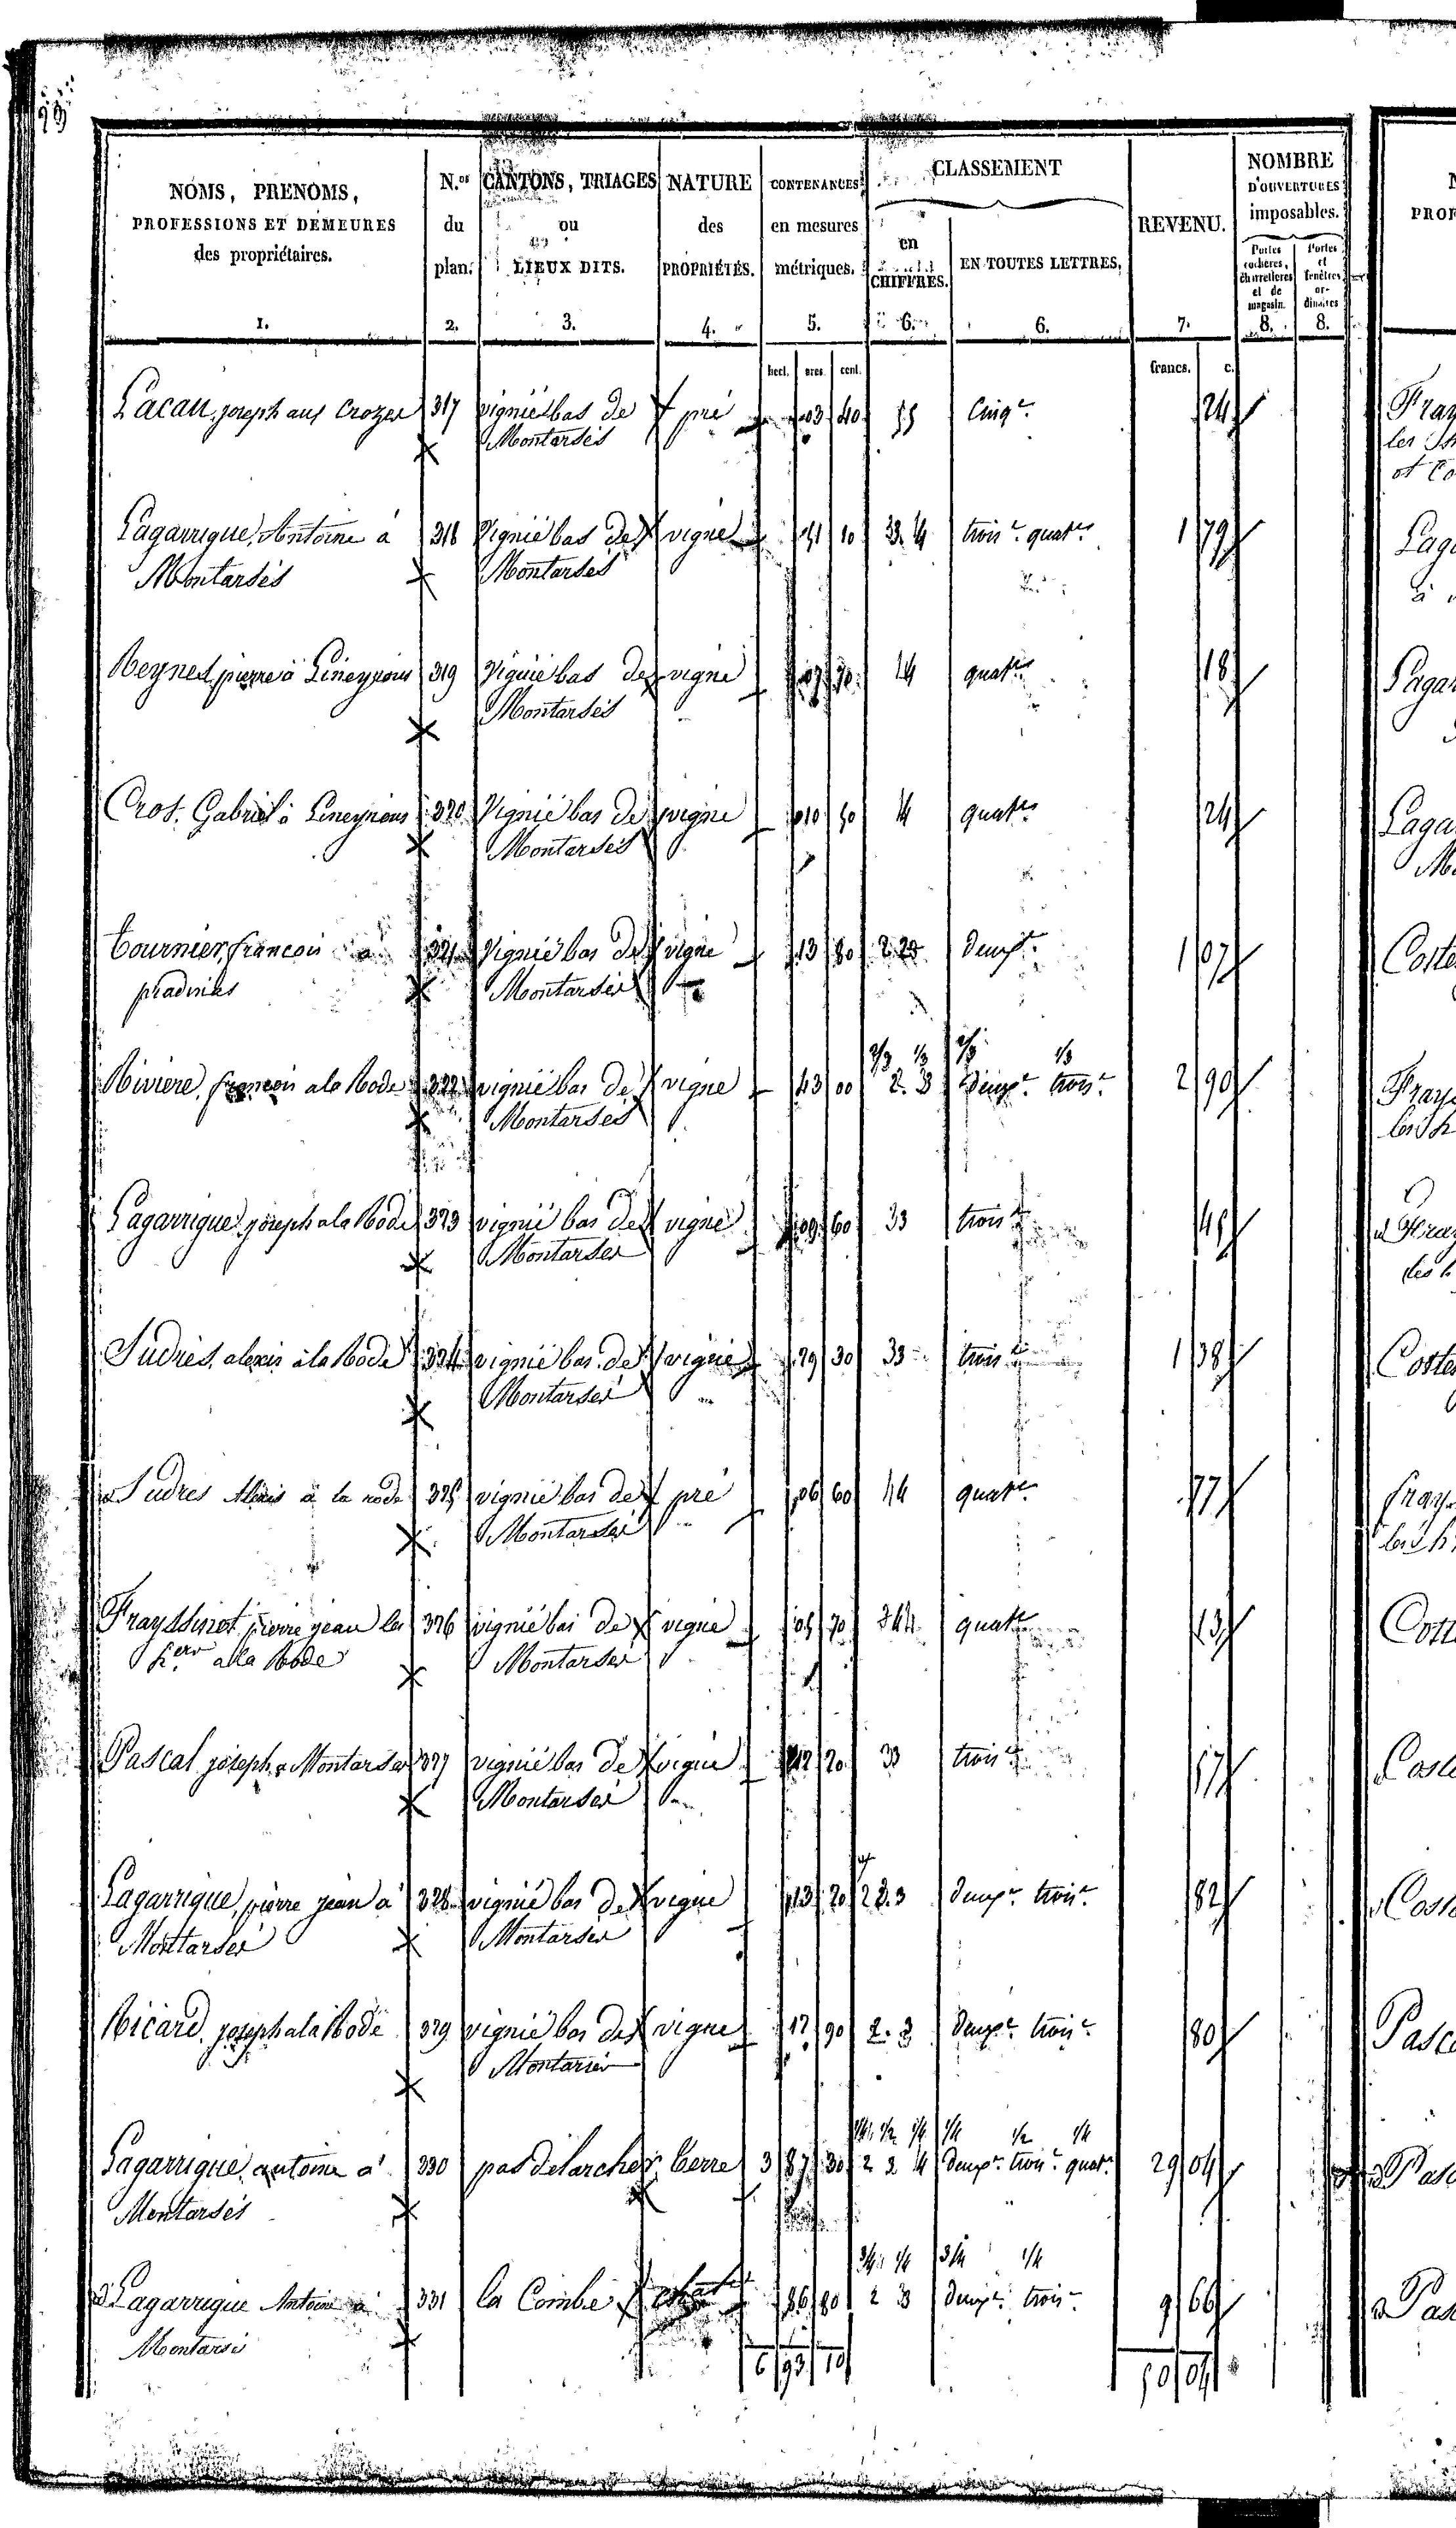 NOMS, PRENOMS,
PROFESSIONS ET DEMEURES
des propriétaires.
1.
N.os
du
plan.
2.
CANTONS, TRIAGES
ou
LIEUX DITS.
3.
NATURE
des
PROPRIÉTÉS.
4.
CONTENANCES
en mesures
métriques.
5.
CLASSEMENT
en
CHIFFRES.
6.
EN TOUTES LETTRES.
6.
REVENU.
7.
NOMBRE
D'OUVERTURES
imposables.
Portes cochères, charretières et de magasin.
8.
Portes et fenêtres ordinaires
8.
hect. ares cent. francs. c.
Lacan, joseph aux Crozes 317 vignié bas de pré 03 40 55 Cinq.e 24
Montarsés
Lagarrigue, Antoine à 318 Vignié bas de vigne 51 10 33.4 trois.e quat.e 1 79
Montarsés Montarsés
pierre à 319 Vignié bas de vigne 07 70 14 quat.e 18
Montarsés
Crot, Gabriel à 320 Vignié bas de vigne 10 50 14 quat.e 24
Montarsés
Tournier, francois a 321 Vignié bas de vigne 13 80 deux.e 1 07
pradinas Montarsés
2/3 1/3 2/3 1/3
Riviere, francois a la Rode 322 vignié bas de vigne 43 00 2. 3 deux.e trois.e 2 90
Montarsés
Lagarrigue, joseph a la Rode 323 vignié bas de vigne 09 60 33 trois.e 45
Montarses
Sudres, alexis à la Rode 324 vignié bas de vigne 29 30 33 trois.e 1 38
Montarsés
Sudres Alexis à la rode 325 vignié bas de pré 06 60 44 quat.e 77
Montarsés
Frayssinet, pierre jean les 326 vignié bas de vigne 05 70 quat.e 13
h.ers a la Rode Montarses
Pascal, joseph a Montarses 327 vignié bas de vigne 12 20 33 trois.e 57
Montarsés
Lagarrigue, pierre jean a 328 vignié bas de vigne 13 20 2 2.3 deux.e trois.e 82
Montarsés Montarses
Ricard, joseph a la Rode 329 vignié bas de vigne 17 90 2. 3 deux.e trois.e 80
Montarses
1/4 1/2 1/4 1/4 1/2 1/4
Lagarrigue, antoine a 330 pas de larche terre 3 87 30 2 3 4 deux.e trois.e quat.e 29 04
Montarsés
3/4 1/4 3/4 1/4
Lagarrigue Antoine a 331 la Combe 86 80 2 3 deux.e trois.e 9 66
Montarsé
6 93 10 50 04